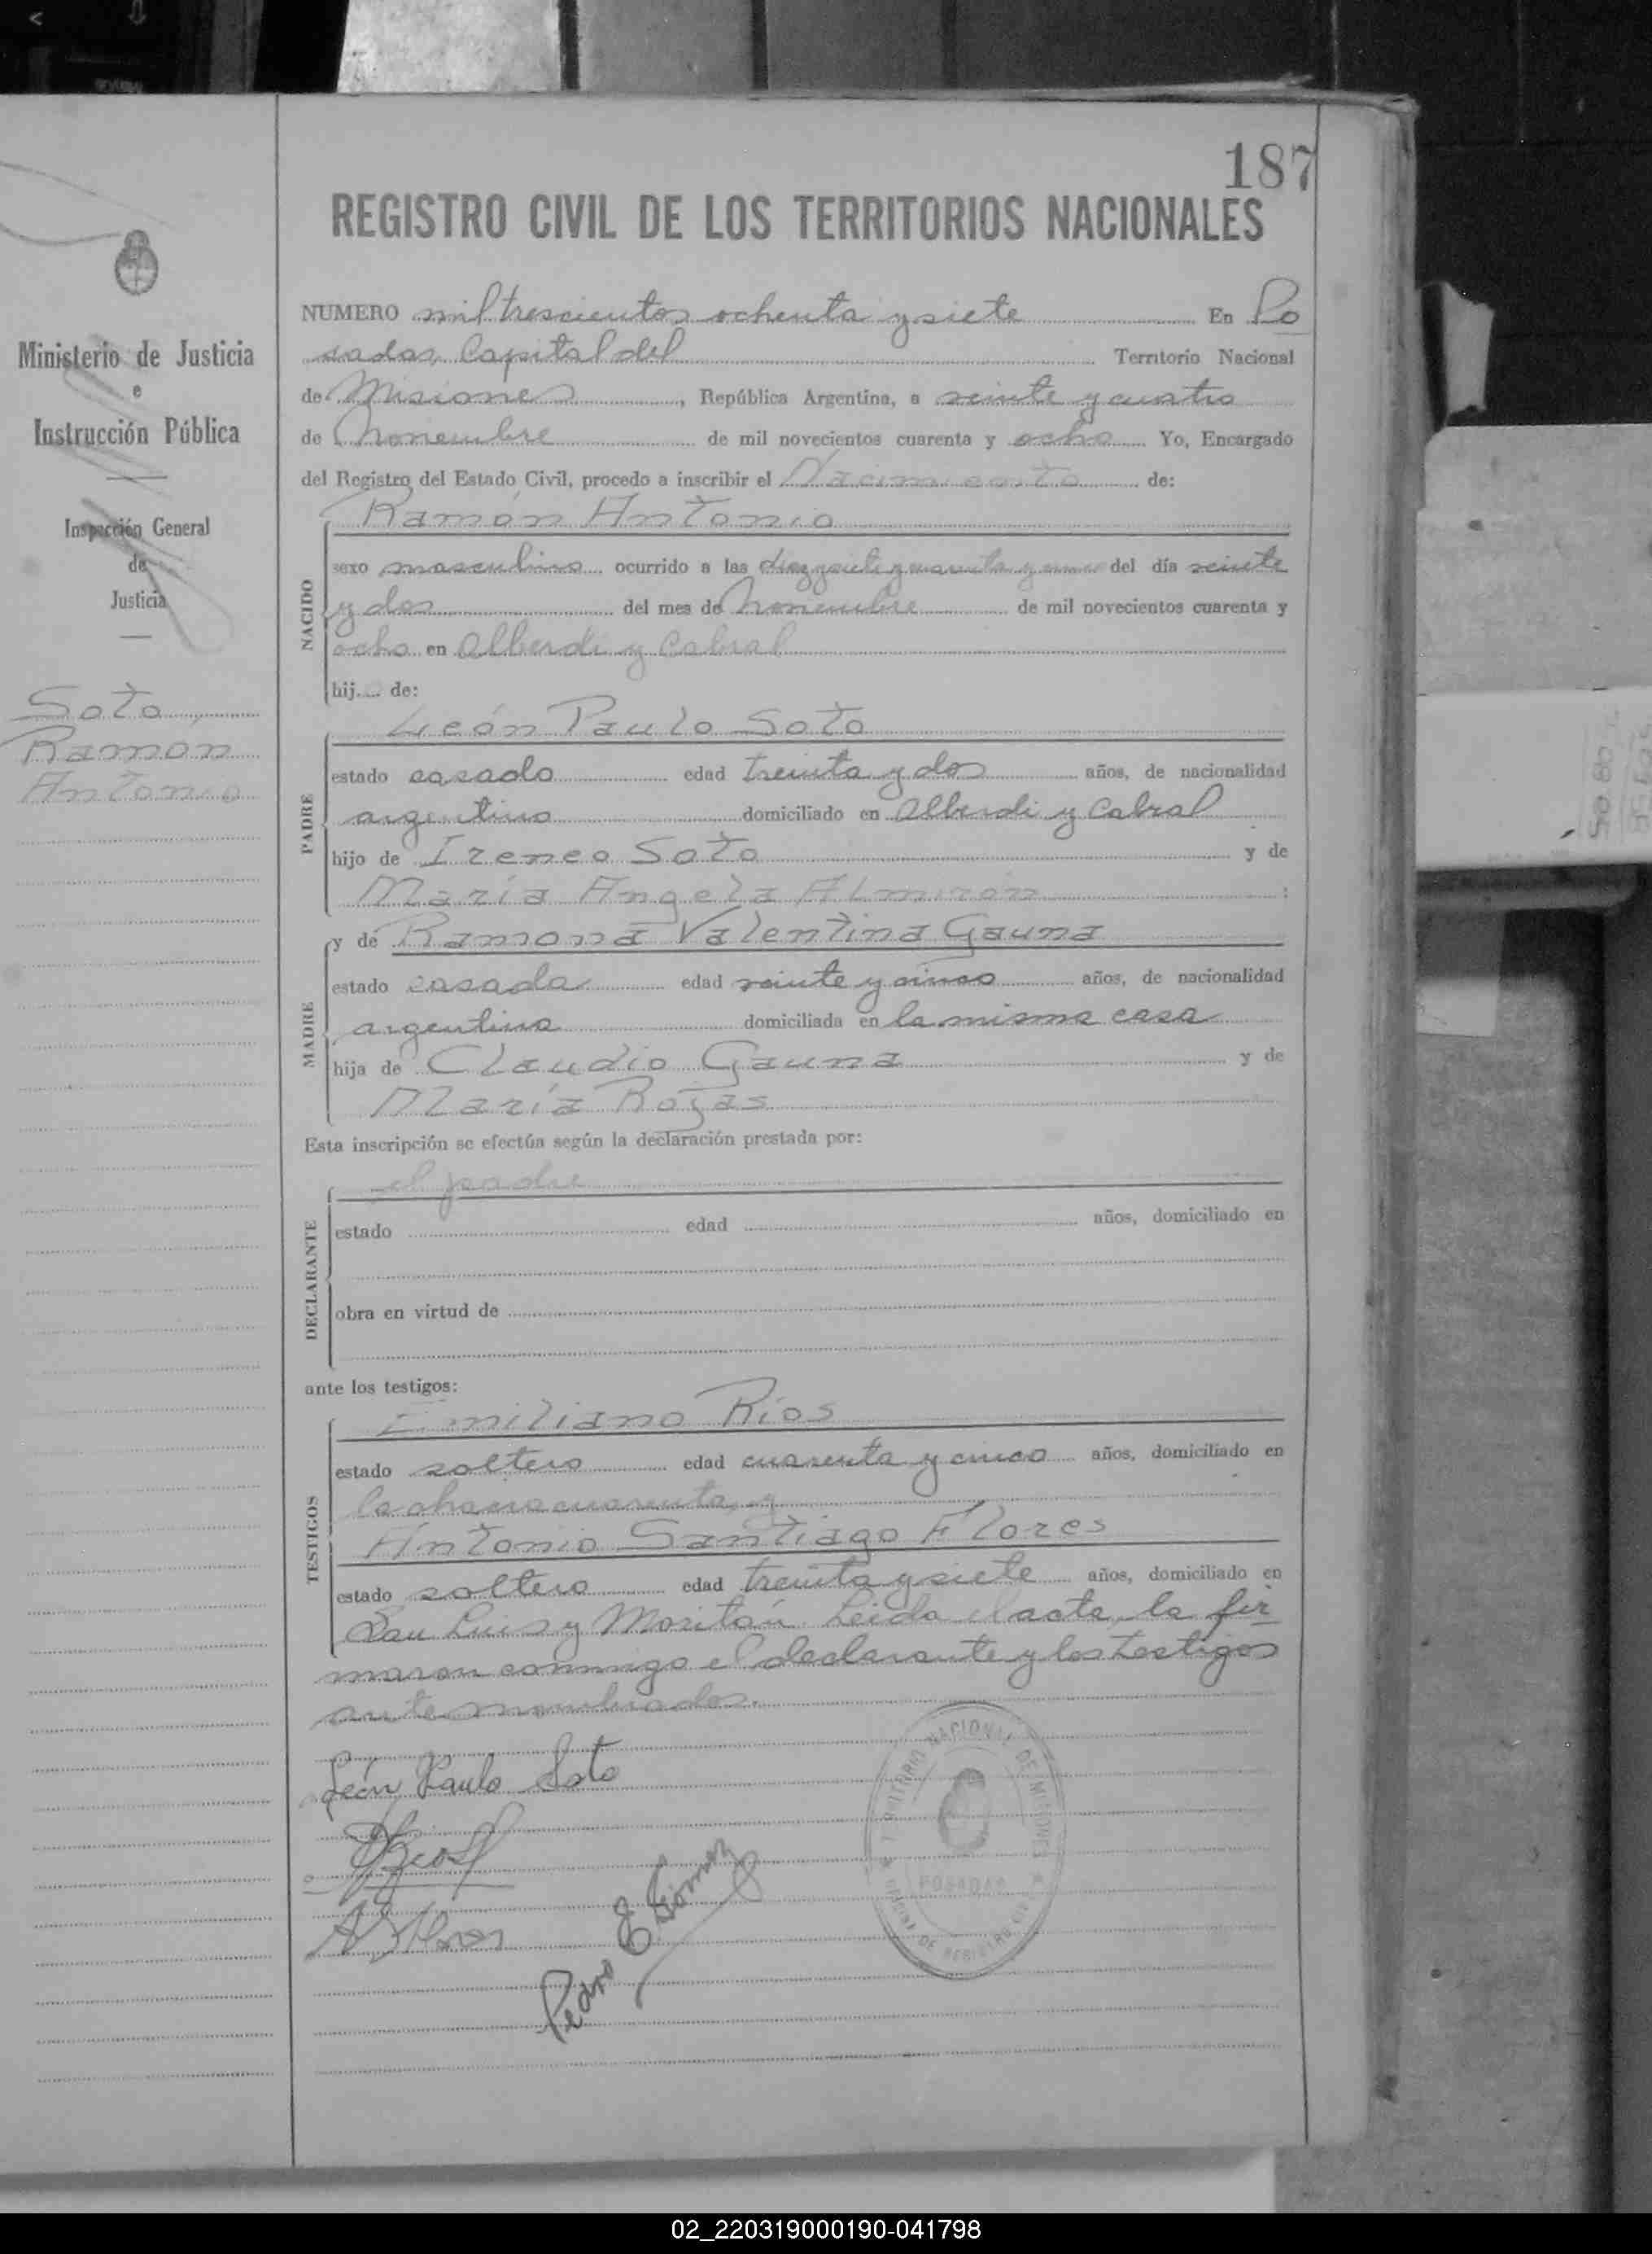 187
REGISTRO CIVIL DE LOS TERRITORIOS NACIONALES
Ministerio de Justicia
e
Instrucción Pública
Inspección General
de
Justicia
Soto
Ramón
Antonio
NUMERO mil trescientos ochenta y siete En Po
sadas, Capital del Territorio Nacional
de Misiones, República Argentina, a veinte y cuatro
de Noviembre de mil novecientos cuarenta y ocho Yo, Encargado
del Registro del Estado Civil, procedo a inscribir el Nacimiento de:
Ramón Antonio
NACIDO
sexo masculino ocurrido a las diez y siete y cuarenta y cinco del día veinte
y dos del mes de Noviembre de mil novecientos cuarenta y
ocho en Alberdi y Cabral
hij de:
León Paulo Soto
PADRE
estado casado edad treinta y dos años, de nacionalidad
argentino domiciliado en Alberdi y Cabral
hijo de Ireneo Soto y de
María Angela Almirón :
y de Ramona Valentina Gauna
MADRE
estado casada edad veinte y cinco años, de nacionalidad
argentina domiciliada en la misma casa
hija de Claudio Gauna y de
María Rojas
Esta inscripción se efectúa según la declaración prestada por:
el padre
DECLARANTE
estado edad años, domiciliado en
obra en virtud de
ante los testigos:
Emiliano Ríos
TESTIGOS
estado soltero edad cuarenta y cinco años, domiciliado en
la chacra cuarenta, y
Antonio Santiago Flores
estado soltero edad treinta y siete años, domiciliado en
San Luis y Moritán. Leida el acta, la fir
maron conmigo el declarante y los testigos
ante nombrados.
León Paulo Soto
ERíos
ASFlores
Pedro E. Gómez
TERRITORIO NACIONAL DE MISIONES
POSADAS
02_220319000190-041798